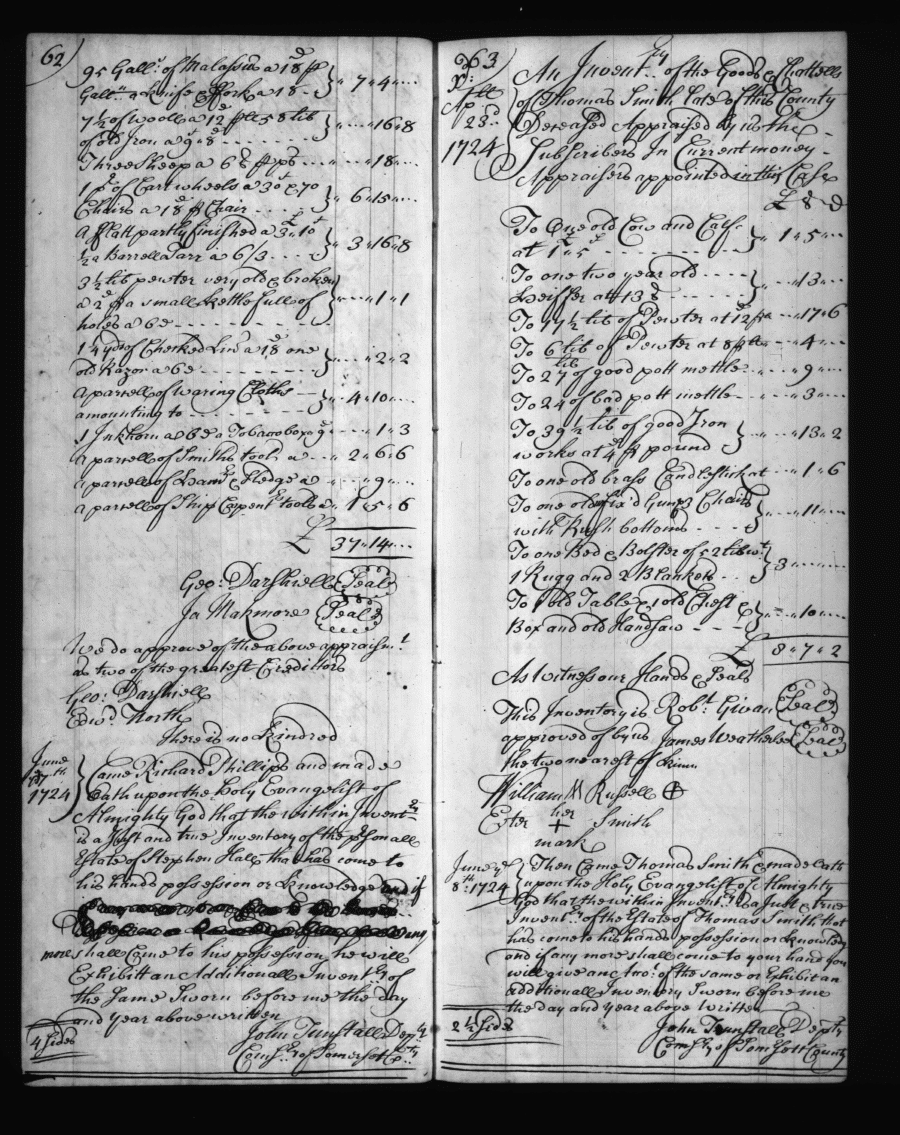 62
95 Gall.s of Malassus a 18d p
Gall.n a Knife & Fork a 18 - } " 7 " 4 " ...
7½ of Wooll a 12d p ll 58 lib
of old Iron a 9d " 8 } " .. " 16 " 8
Three Sheep a 6s p ps ... " .. " 18 " ...
1 pr of Cart wheels a 30s & 70
Chairs a 18d p Chair } " 6 " 15 " ...
A flatt partly finished a 3£ " 10s
½ a Barrell Tarr a 6/3 .... } " 3 " 16 " 8
3½ lib pewter very old & broken
a 2d p a small Kettle full of
holes a 6d } " .. " 1 " 1
14 yds of Checked Lin a 18d one
old Razor a 6d } " .. " 2 " 2
a parcell of waring Cloths
amounting to } " 4 " 10 " ...
1 Inkhorn a 6d a Tobacobox 9d " .. " 1 " 3
a parcell of Smiths tools a -- " 2 " 6 " 6
a parcell of Hand Sledge a -- " .. " 9 " ...
a parcell of Ship Carpentrs tools a " 1 " 5 " 6
£ 37 " 14 " ...
Geo: Dashiell Seal
Ja Makmore Seal
We do approve of the above appraism.t
as two of the greatest Creditors
Geo: Dashiell
Edwd North
There is no Kindred
June
17th
1724
Came Richard Phillips and made
Oath upon the Holy Evangelist of
Almighty God that the within Inventry
is a Just and true Inventory of the psonall
Estate of Stephen Hall that has come to
his hands possession or Knowledge and if
any
more shall Come to his possession he will
Exhibitt an Additionall Inventry of
the Same Sworn before me the day
and year above written
John Tunstall Depty
Comsry of Somersett Cty
4 Sides
63
Aple
23d
1724
An Inventry of the Goods & Chattells
of Thomas Smith late of this County
Deceased Appraised by us the -
Subscribers In Current money -
Appraisers appointed in this Case
£ S D
To One old Cow and Calf
at 1£ " 5s } " 1 " 5 " ...
To one two year old ....
Heiffer at 13s } " .. " 13 " ..
To 17½ lib of Pewter at 12d p " .. " 17 " 6
To 6 lib of Pewter at 8 p ll " .. " 4 " ...
To 27 lib of good pott mettle " .. " 9 " ...
To 24 of bad pott mettle " .. " 3 " ...
To 39½ lib of good Iron
works at 4d p pound } " .. " 13 " 2
To one old brass Candlestick at " .. " 1 " 6
To one old fix'd Gun & 3 Chairs
with Rush bottoms } " .. " 11 " ...
To one Bed & Bolster of 52 lib wt
1 Rugg and 2 Blankets } 3 " .. " ..
To 1 old Table & 1 old Chest &
Box and old Handsaw } " .. " 10 " ...
£ 8 " 7 " 2
As Witness our Hands & Seals
This Inventory is Robt Givan Seal
approved of by us James Weatherlee Seal
the two nearest of kinn
William M Russell ⊕
Ester her Smith
+
mark
June ye
8th 1724
Then Came Thomas Smith & made Oath
upon the Holy Evangelist of Almighty
God that the within Inventry is a Just & true
Inventry of the Estate of Thomas Smith that
has come to his hands possession or knowledg
and if any more shall come to your hand you
will give an Acco: of the same or Exhibit an
additionall Inventory Sworn before me
the day and year above Written
John Tunstall Depty
Comsry of Somsett County
2½ Sides